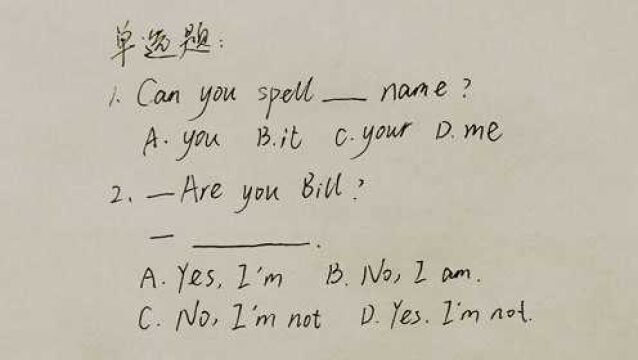 单选题:
1. Can you spell ___ name?
A. you B. it C. your D. me
2. —Are you Bill?
— ________.
A. Yes, I'm B. No, I am.
C. No, I'm not D. Yes. I'm not.